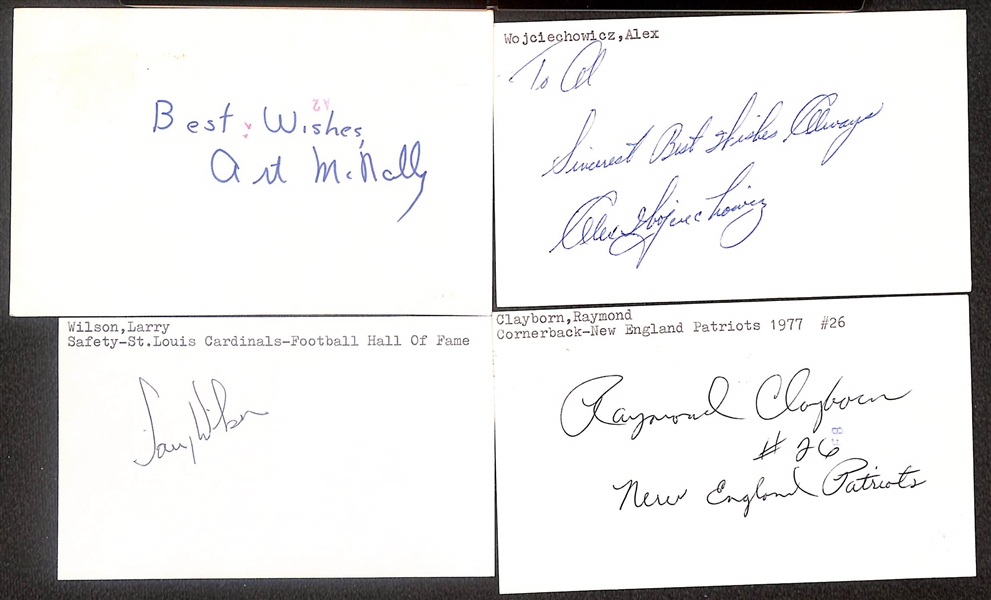 Best Wishes,
A2
Art McNally
Wojciechowicz,Alex
To Al
Sincerest Best Wishes Always
Alex Wojciechowicz
Wilson,Larry
Safety-St.Louis Cardinals-Football Hall Of Fame
Larry Wilson
Clayborn,Raymond
Cornerback-New England Patriots 1977 #26
Raymond Clayborn
# 26
New England Patriots